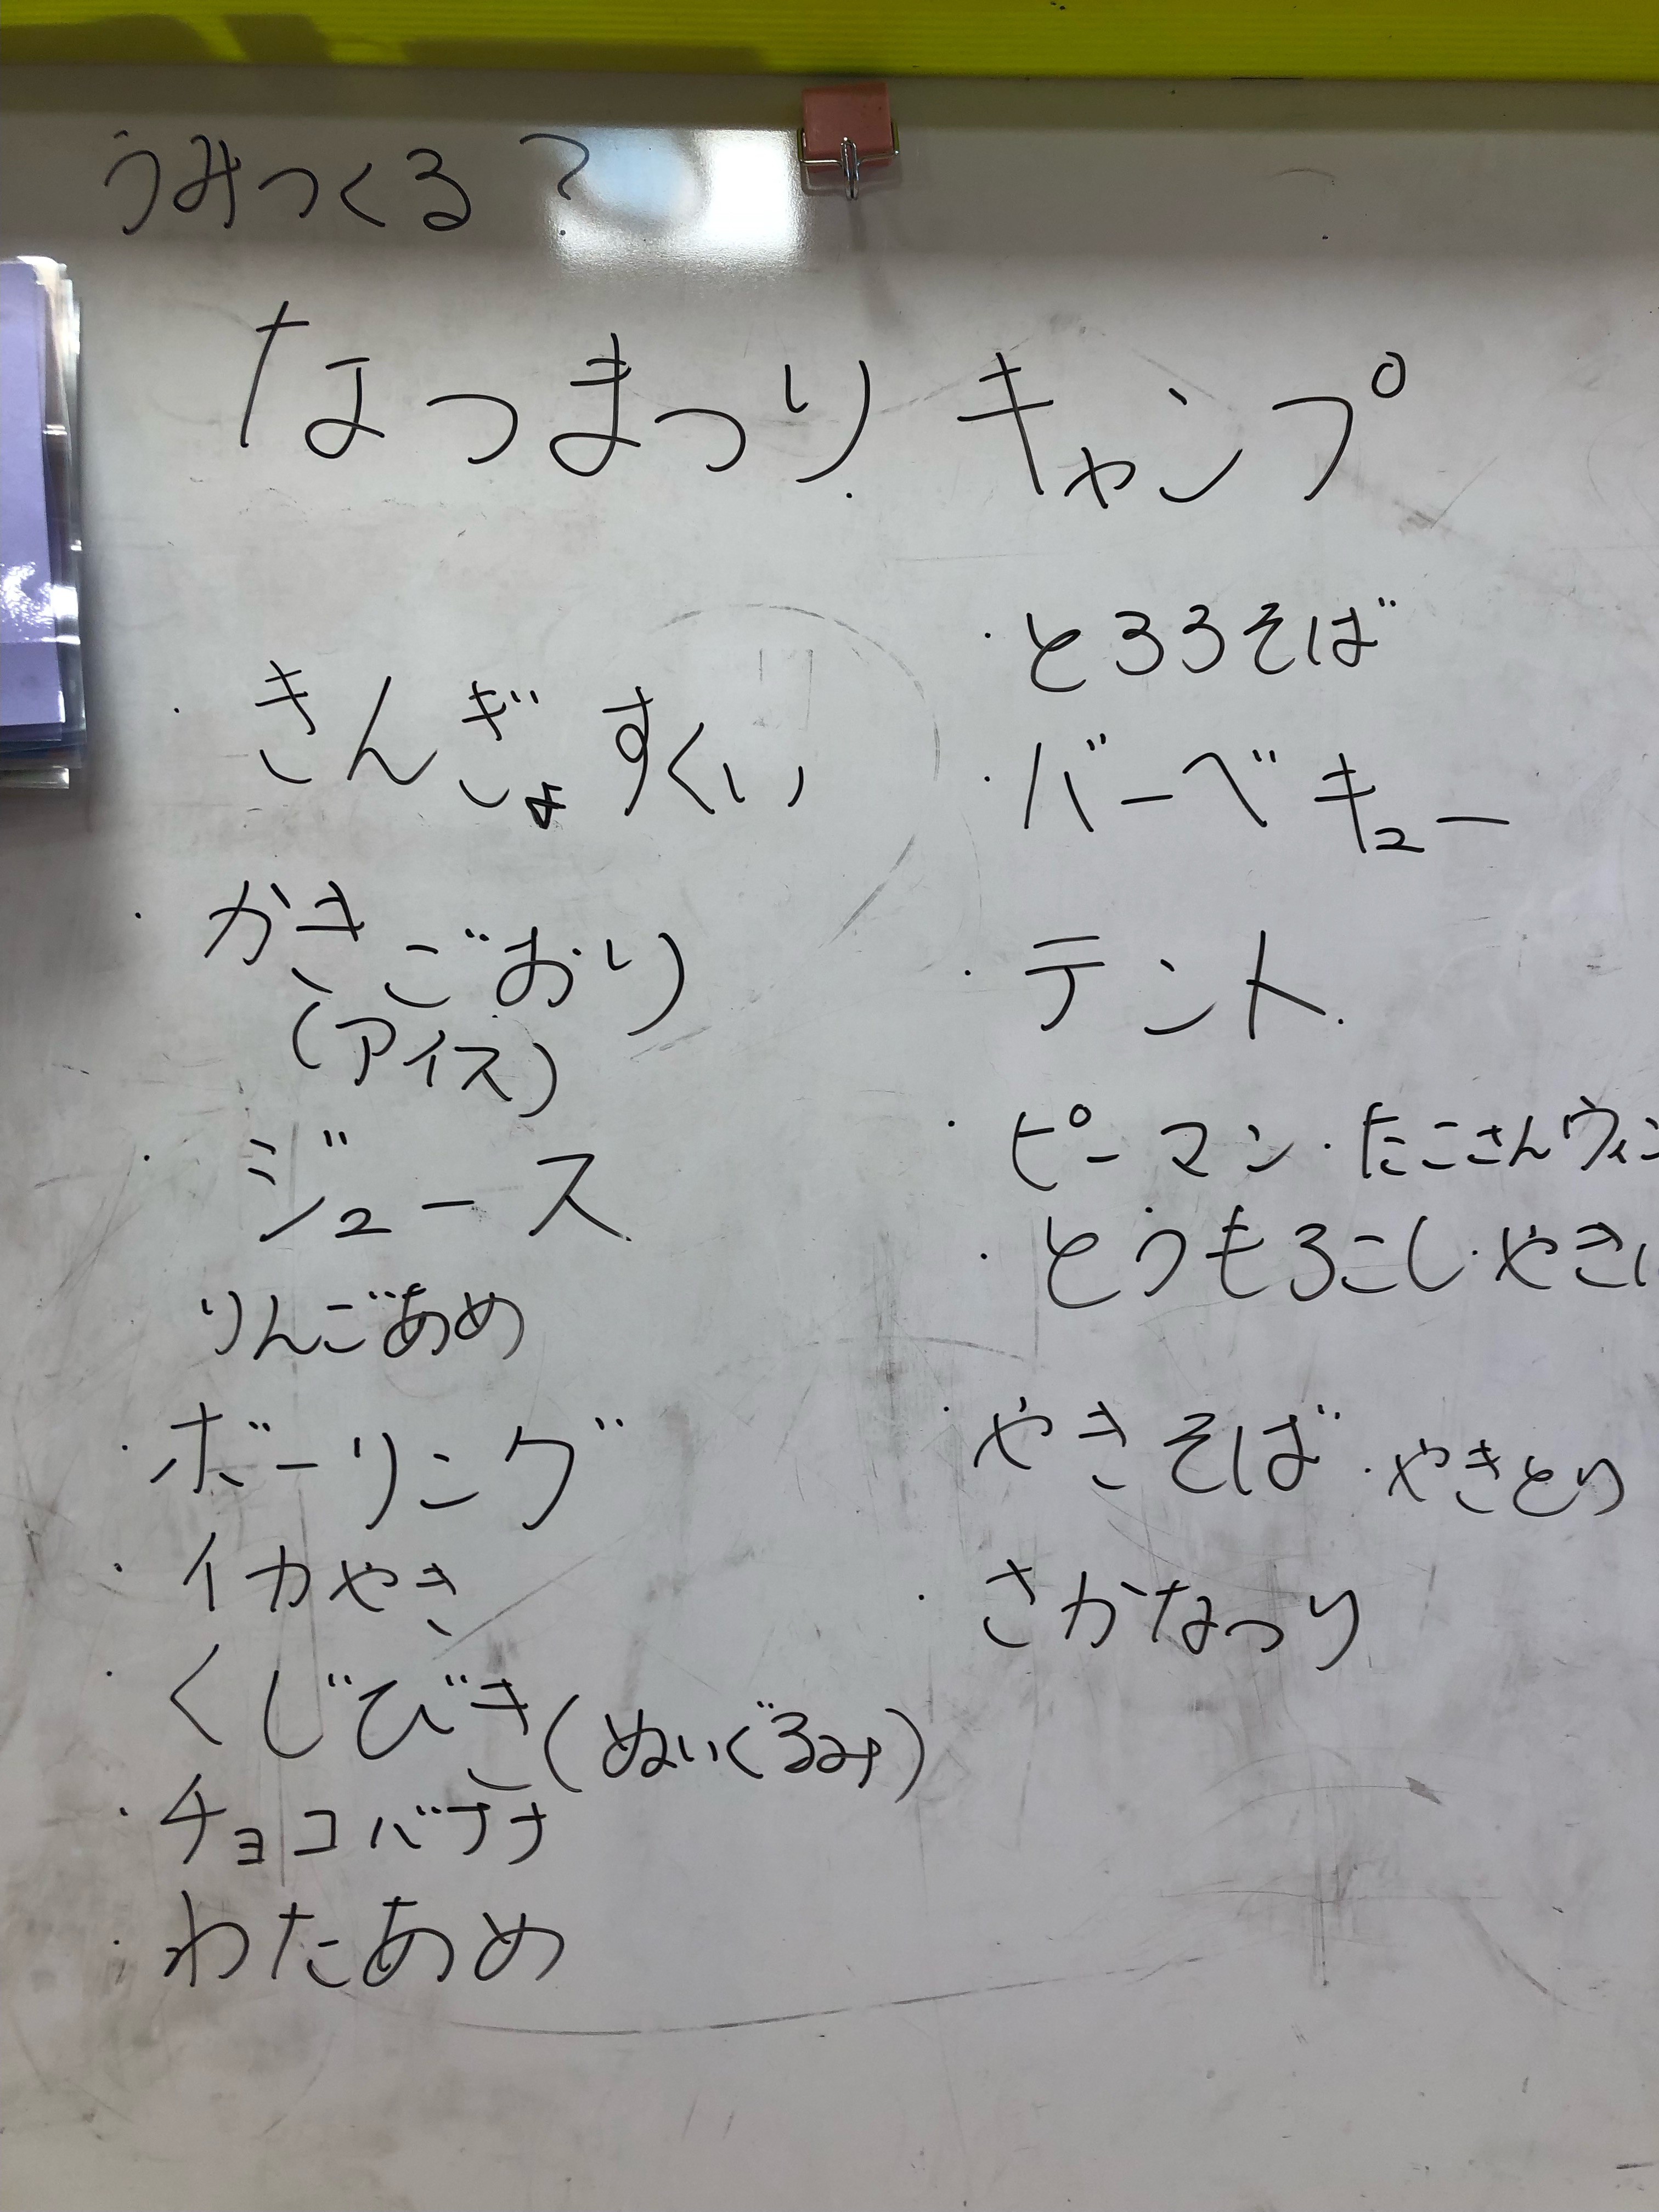 うみつくる?
なつまつり キャンプ
・きんぎょすくい
・かきごおり
(アイス)
・ジュース
りんごあめ
・ボーリング
・イカやき
・くじびき(ぬいぐるみ)
・チョコバナナ
・わたあめ
・とろろそば
・バーベキュー
・テント
・ピーマン・たこさんウィン
・とうもろこし・やき
・やきそば・やきとり
・さかなつり